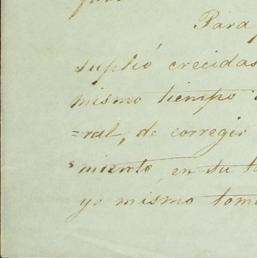 Para
suplió crecidas
mismo tiempo
=ral, de corregir
miento, en su
yo mismo tom